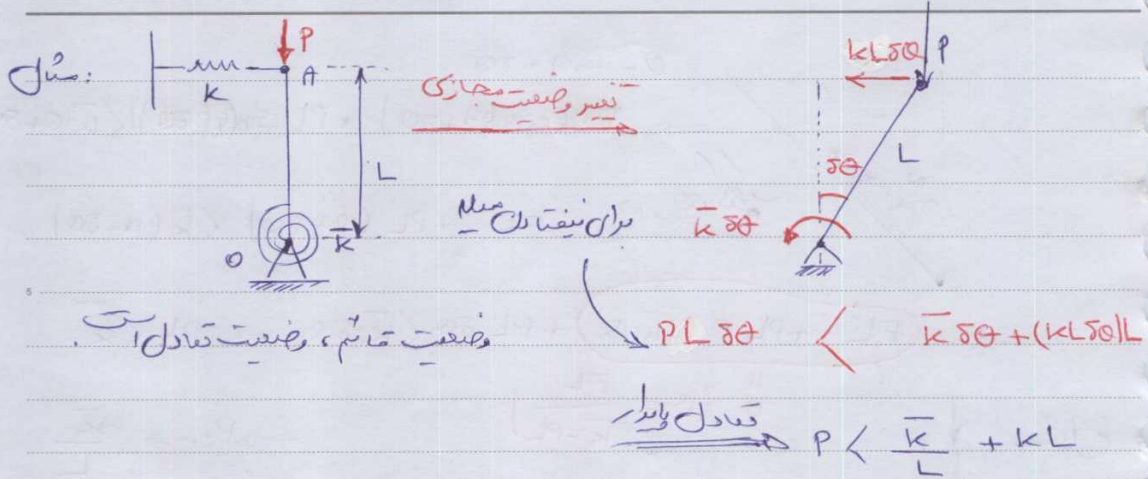 مثال:
P
A
k
L
O
k̄
تغییر وضعیت مجازی
P
kLδθ
L
δθ
k̄ δθ
برای نیفتادن میله
وضعیت قائم، وضعیت تعادل است.
PL δθ < k̄ δθ + (kLδθ)L
تعادل پایدار
P < k̄/L + kL
5